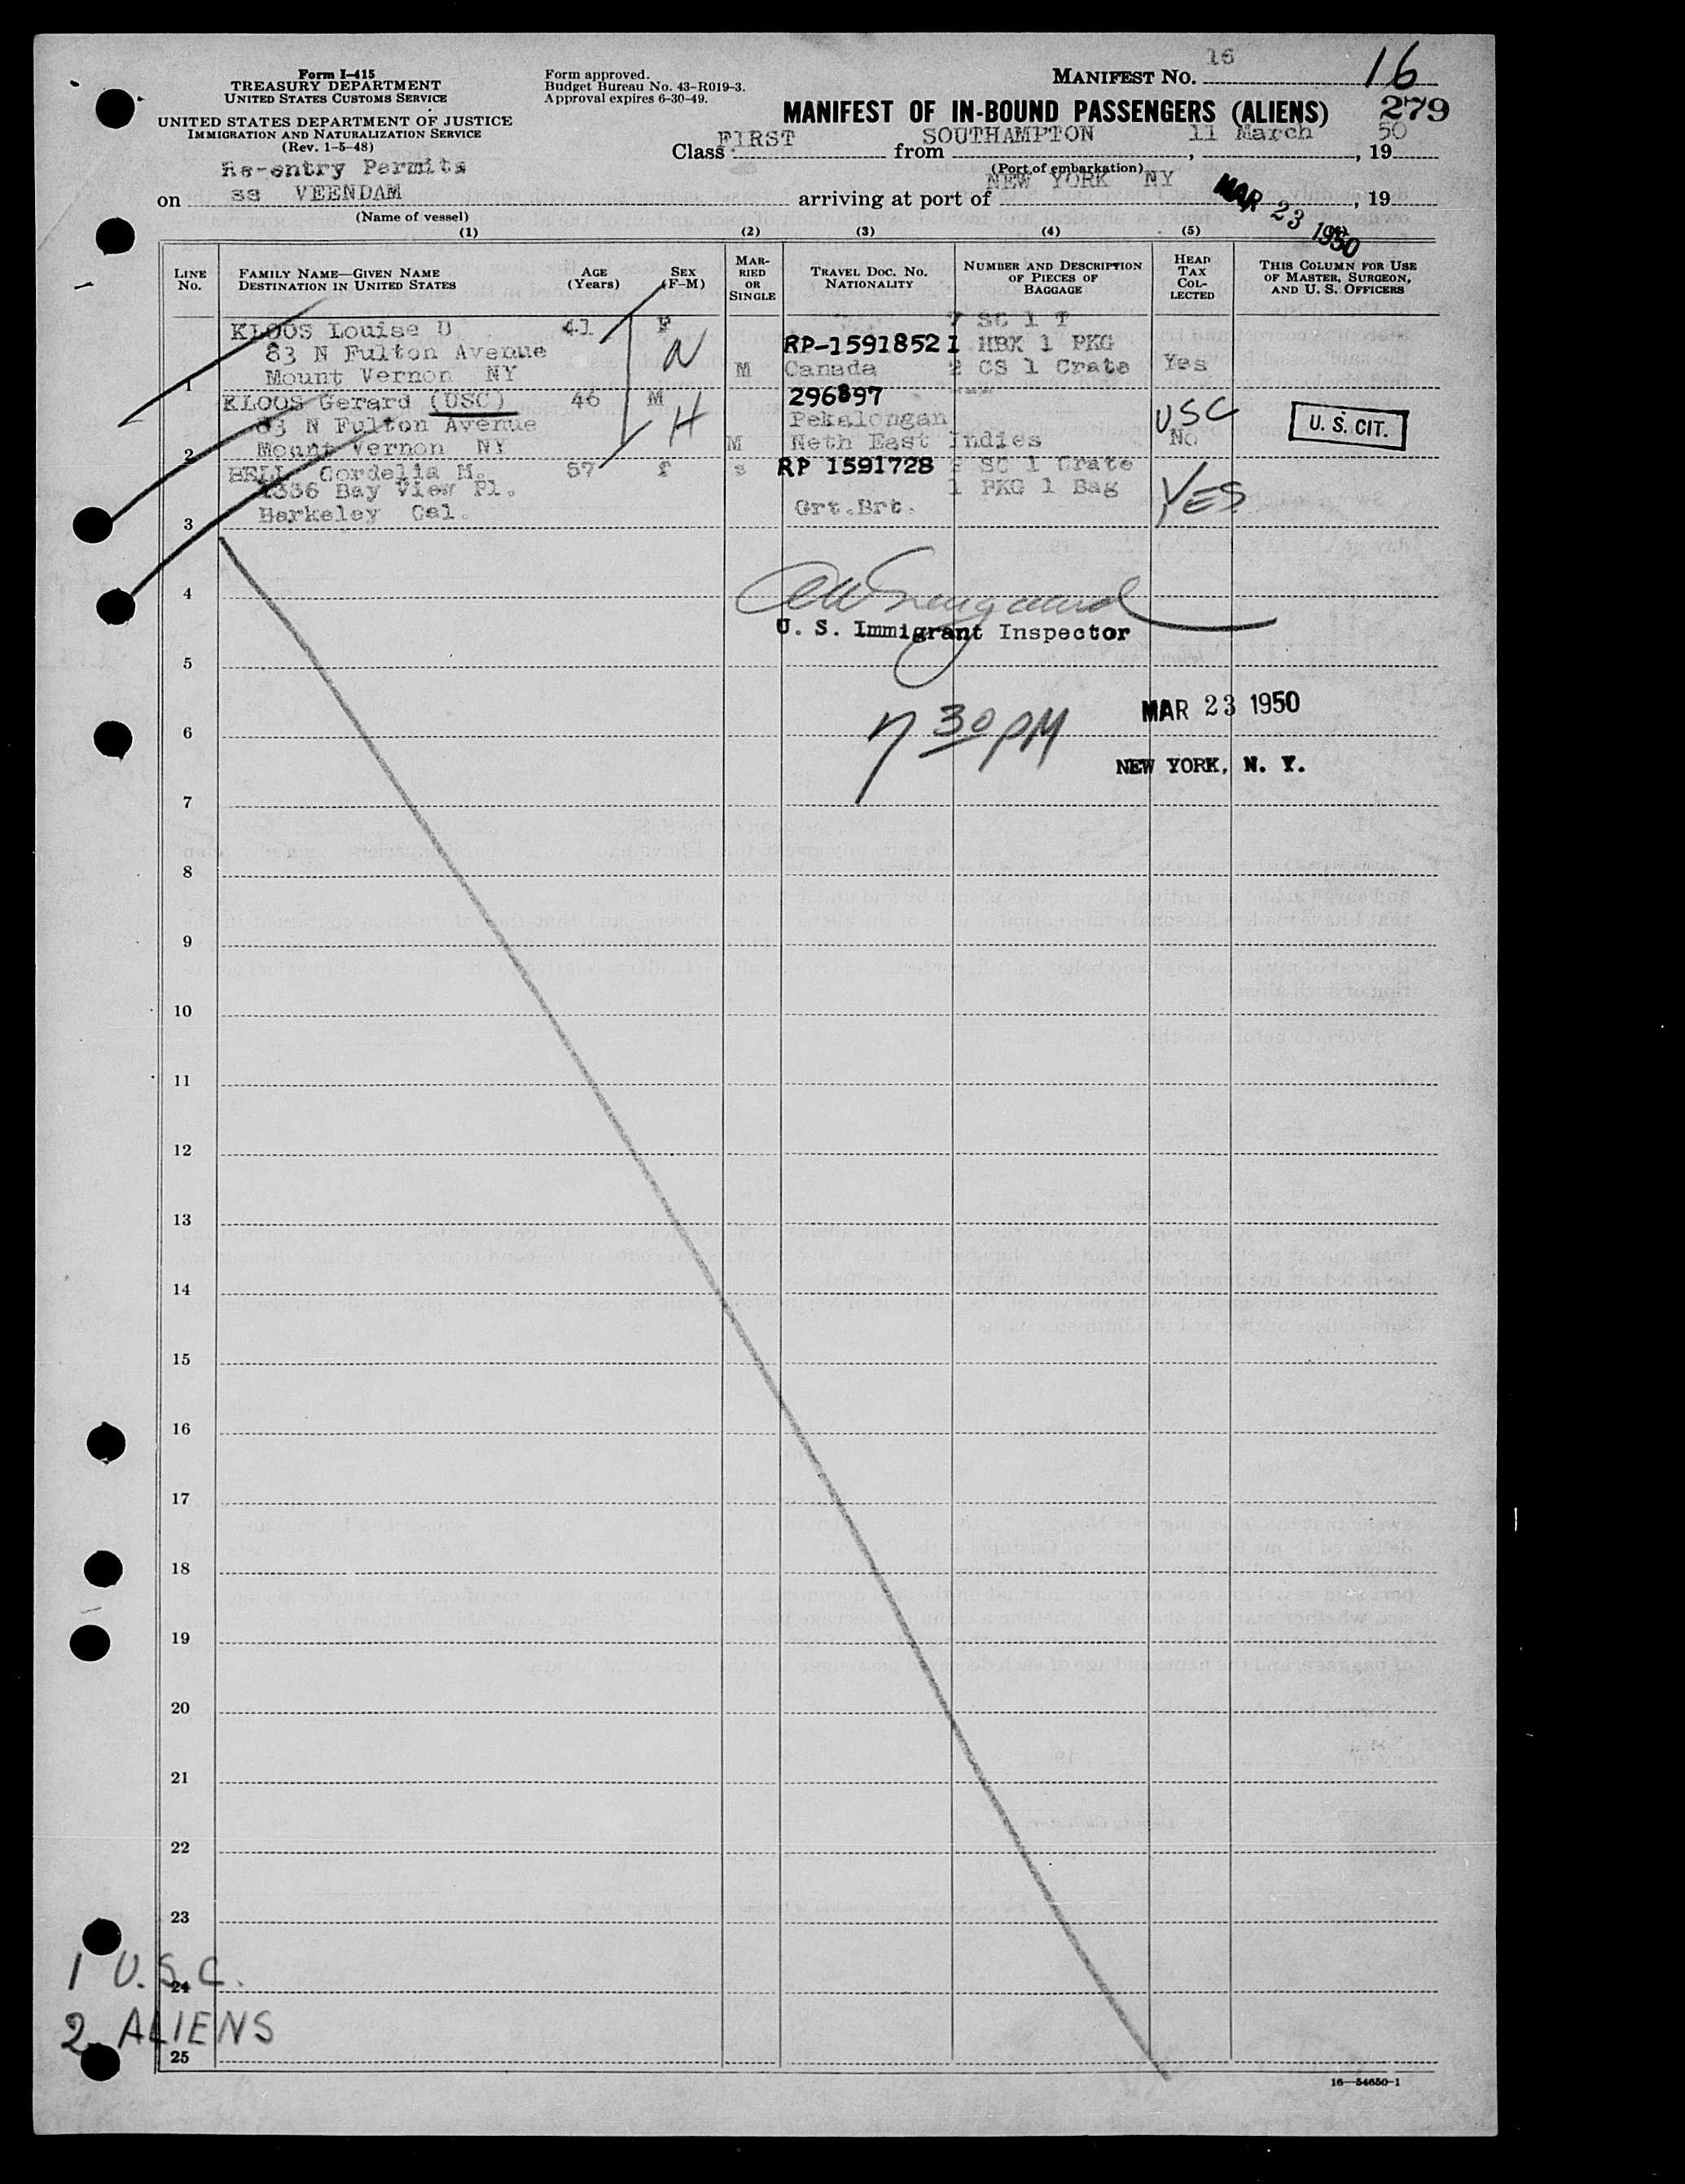 Form I-415
TREASURY DEPARTMENT
UNITED STATES CUSTOMS SERVICE
UNITED STATES DEPARTMENT OF JUSTICE
IMMIGRATION AND NATURALIZATION SERVICE
(Rev. 1-5-48)
Form approved.
Budget Bureau No. 43-R019-3.
Approval expires 6-30-49.
16
MANIFEST NO. 16
MANIFEST OF IN-BOUND PASSENGERS (ALIENS) 279
Class FIRST from SOUTHAMPTON, 11 March, 1950
(Port of embarkation)
Re-entry Permits
on ss VEENDAM arriving at port of NEW YORK NY MAR 23 1950, 19
(Name of vessel)
(1) (2) (3) (4) (5)
LINE No. FAMILY NAME—GIVEN NAME DESTINATION IN UNITED STATES AGE (Years) SEX (F-M) MARRIED OR SINGLE TRAVEL DOC. NO. NATIONALITY NUMBER AND DESCRIPTION OF PIECES OF BAGGAGE HEAD TAX COLLECTED THIS COLUMN FOR USE OF MASTER, SURGEON, AND U. S. OFFICERS
KLOOS Louise D 41 F 7 SC 1 T
83 N Fulton Avenue N RP-1591852 1 HBX 1 PKG
1 Mount Vernon NY M Canada 2 CS 1 Crate Yes
KLOOS Gerard (USC) 46 M 296897 ---
83 N Fulton Avenue H Pekalongan USC U. S. CIT.
2 Mount Vernon NY M Neth East Indies No
BELL Cordelia M. 57 f s RP 1591728 SC 1 Crate
1336 Bay View Pl. 1 PKG 1 Bag YES
3 Berkeley Cal. Grt.Brt.
4
U. S. Immigrant Inspector
5
MAR 23 1950
6 7 30 PM
NEW YORK, N. Y.
7
8
9
10
11
12
13
14
15
16
17
18
19
20
21
22
23
1 U.S.C.
24
2 ALIENS
25
16—54650-1